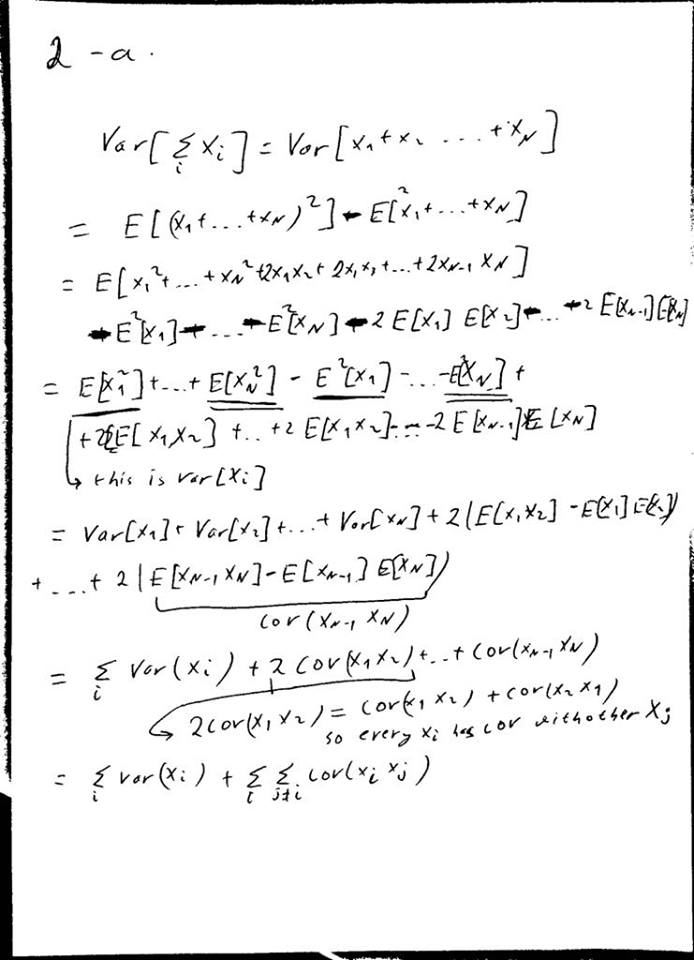 2 - a.
Var[Σ_i X_i] = Var[x₁ + x₂ ... + x_N]
= E[(x₁ + ... + x_N)²] - E²[x₁ + ... + x_N]
= E[x₁² + ... + x_N² + 2x₁x₂ + 2x₁x₃ + ... + 2x_{N-1} x_N]
- E²[x₁] - ... - E²[x_N] - 2 E[x₁] E[x₂] - ... - 2 E[x_{N-1}] E[x_N]
= E[x₁²] + ... + E[x_N²] - E²[x₁] - ... - E²[x_N] +
+ 2E[x₁x₂] + .. + 2 E[x₁x₂] - ... - 2 E[x_{N-1}] E[x_N]
↳ this is var[x_i]
= Var[x₁] + Var[x₂] + ... + Var[x_N] + 2(E[x₁x₂] - E[x₁] E[x₂])
+ ... + 2(E[x_{N-1} x_N] - E[x_{N-1}] E[x_N])
cov(x_{N-1} x_N)
= Σ_i Var(x_i) + 2 cov(x₁x₂) + .. + cov(x_{N-1} x_N)
↳ 2cov(x₁x₂) = cov(x₁x₂) + cov(x₂x₁)
so every x_i has cov with other x_j
= Σ_i var(x_i) + Σ_i Σ_{j≠i} cov(x_i x_j)